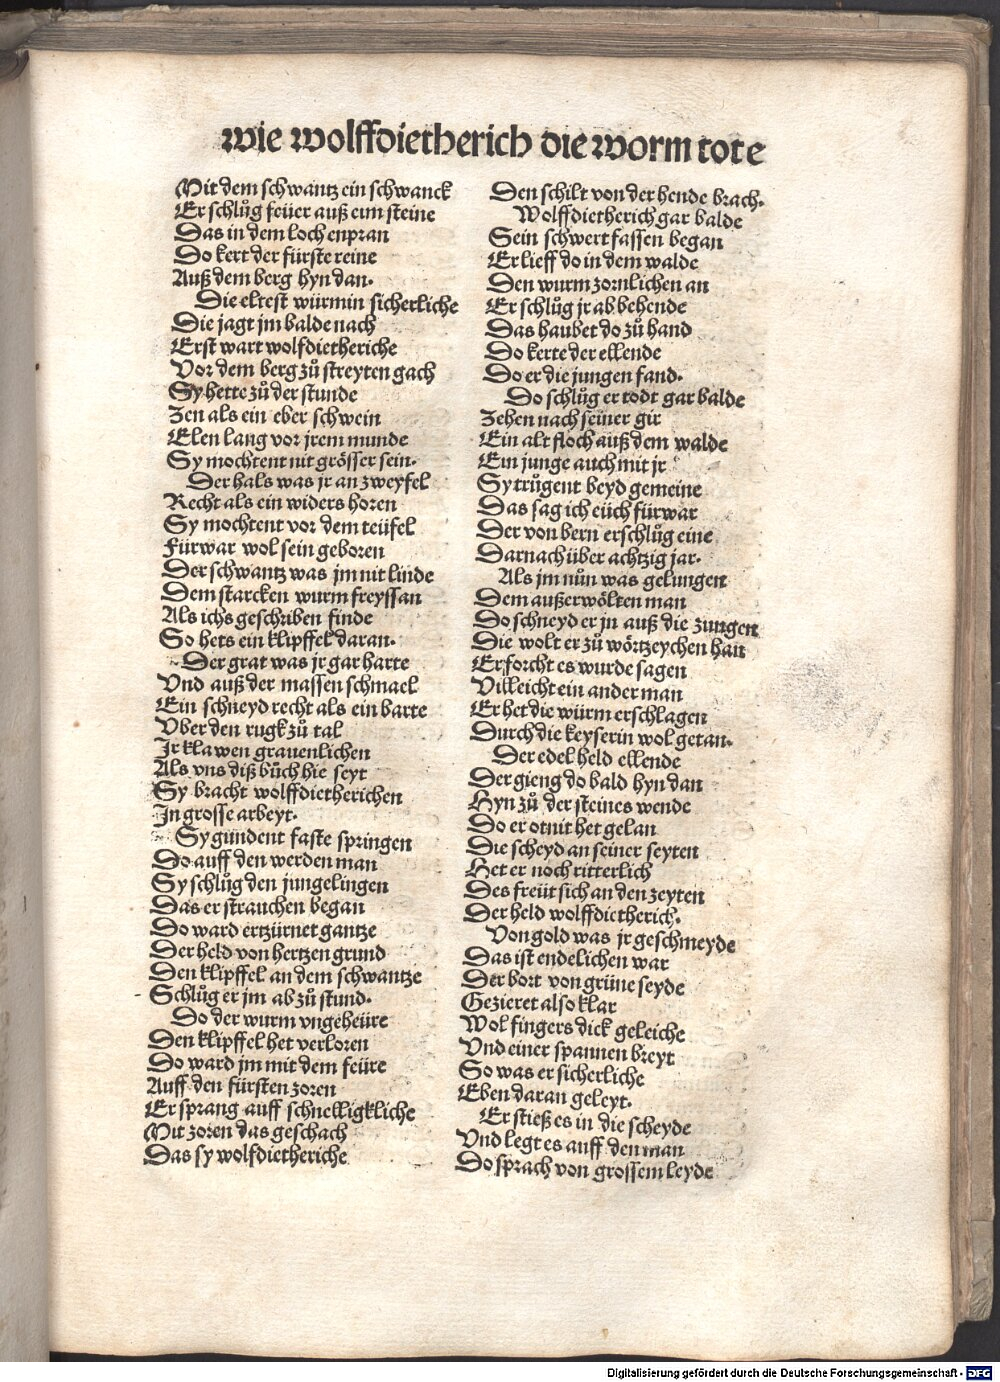 wie wolffdietherich die worm tote
Mit dem schwantz ein schwanck
Er schlůg feüer auß eim steine
Das in dem loch enpran
Do kert der fürste reine
Auß dem berg hyn dan.
Die eltest würmin sicherliche
Die jagt jm balde nach
Erst wart wolfdietheriche
Vor dem berg zů streyten gach
Sy hette zů der stunde
Zen als ein eber schwein
Elen lang vor jrem munde
Sy mochtent nit grösser sein.
Der hals was jr an zweyfel
Recht als ein widers horen
Sy mochtent vor dem teüfel
Fürwar wol sein geboren
Der schwantz was jm nit linde
Dem starcken wurm freyssan
Als ichs geschriben finde
So hets ein klipffel daran.
Der grat was jr gar harte
Vnd auß der massen schmael
Ein schneyd recht als ein barte
Vber den rugk zů tal
Ir klawen grauenlichen
Als vns diß bůch hie seyt
Sy bracht wolffdietherichen
In grosse arbeyt.
Sy gundent faste springen
Do auff den werden man
Sy schlůg den jungelingen
Das er strauchen began
Do ward ertzürnet gantze
Der held von hertzen grund
Den klipffel an dem schwantze
Schlůg er jm ab zů stund.
Do der wurm vngeheüre
Den klipffel het verloren
Do ward jm mit dem feüre
Auff den fürsten zoren
Er sprang auff schnelligkliche
Mit zoren das geschach
Das sy wolfdietheriche
Den schilt von der hende brach.
Wolffdietherich gar balde
Sein schwert fassen began
Er lieff do in dem walde
Den wurm zornlichen an
Er schlůg jr ab behende
Das haubet do zů hand
Do kerte der ellende
Do er die jungen fand.
Do schlůg er todt gar balde
Zehen nach seiner gir
Ein alt floch auß dem walde
Ein junge auch mit jr
Sy trůgent beyd gemeine
Das sag ich eüch fürwar
Der von bern erschlůg eine
Darnach über achtzig jar.
Als jm nůn was gelungen
Dem außerwölten man
Do schneyd er jn auß die zungen
Die wolt er zů wörtzeychen han
Er forcht es wurde sagen
Villeicht ein ander man
Er het die würm erschlagen
Durch die keyserin wol getan.
Der edel held ellende
Der gieng do bald hyn dan
Hyn zů der steines wende
Do er otnit het gelan
Die scheyd an seiner seyten
Het er noch ritterlich
Des freüt sich an den zeyten
Der held wolffdietherich.
Von gold was jr geschmeyde
Das ist endelichen war
Der bort von grüne seyde
Gezieret also klar
Wol fingers dick geleiche
Vnd einer spannen breyt
So was er sicherliche
Eben daran geleyt.
Er stieß es in die scheyde
Vnd legt es auff den man
Do sprach von grossem leyde
Digitalisierung gefördert durch die Deutsche Forschungsgemeinschaft - DFG